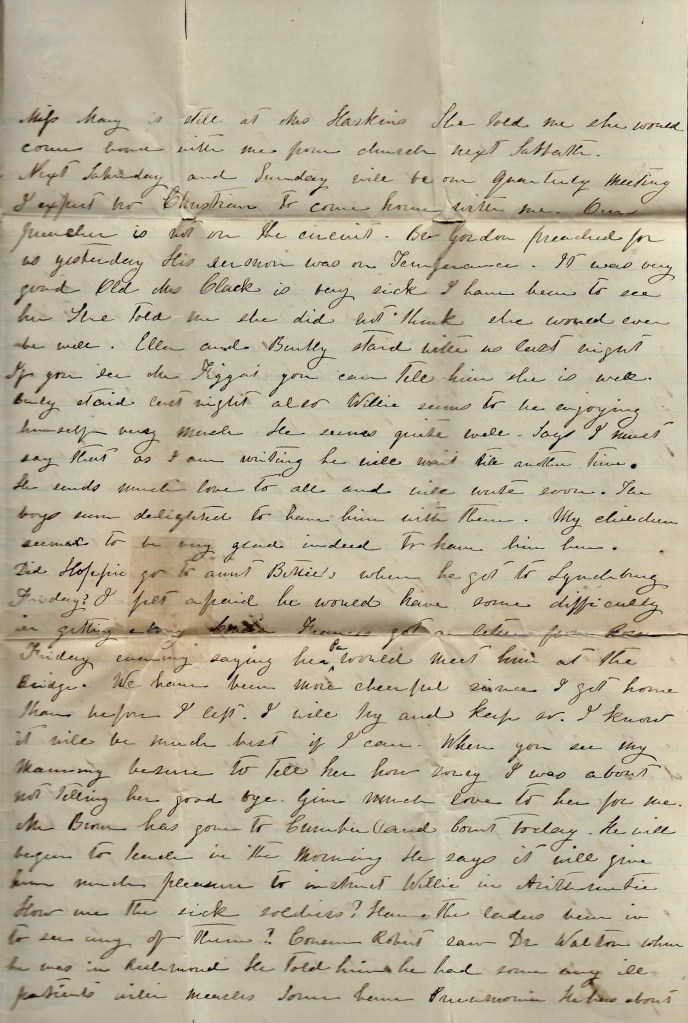 Miss Mary is still at Mrs Haskins She told me she would
come home with me from church next Sabbath.
Next Saturday and Sunday will be our Quarterly Meeting
I expect bro Christian to come home with me. Our
preacher is not on the circuit. Bro Gordon preached for
us yesterday His sermon was on Temperance. It was very
good Old Mrs Clack is very sick I have been to see
her She told me she did not think she would ever
be well. Ellen and staid with us last night
If you see Mr you can tell him she is well.
staid last night also Willie seems to be enjoying
himself very much He seems quite well. Says I must
say that as I am writing he will wait till another time.
He sends much love to all and will write soon. The
boys seem delighted to have him with them. My children
seemed to be very glad indeed to have him here.
Did go to aunt Bettie's when he got to Lynchburg
Friday? I felt afraid he would have some difficulty
in getting along Frances got a letter from
Friday evening saying her Pa would meet him at the
Bridge. We have been more cheerful since I got home
than before I left. I will try and keep so. I know
it will be much best if I can. When you see my
Mammy besure to tell her how sorry I was about
not telling her good bye. Give much love to her for me.
Mr Brown has gone to Cumberland Court today. He will
begin to teach in the morning He says it will give
him much pleasure to instruct Willie in Arithmetic
How are the sick soldiers? Have the ladies been in
to see any of them? Cousin Robert saw Dr Walton when
he was in Richmond He told him he had some very ill
patients with measles Some have Pneumonia He has about